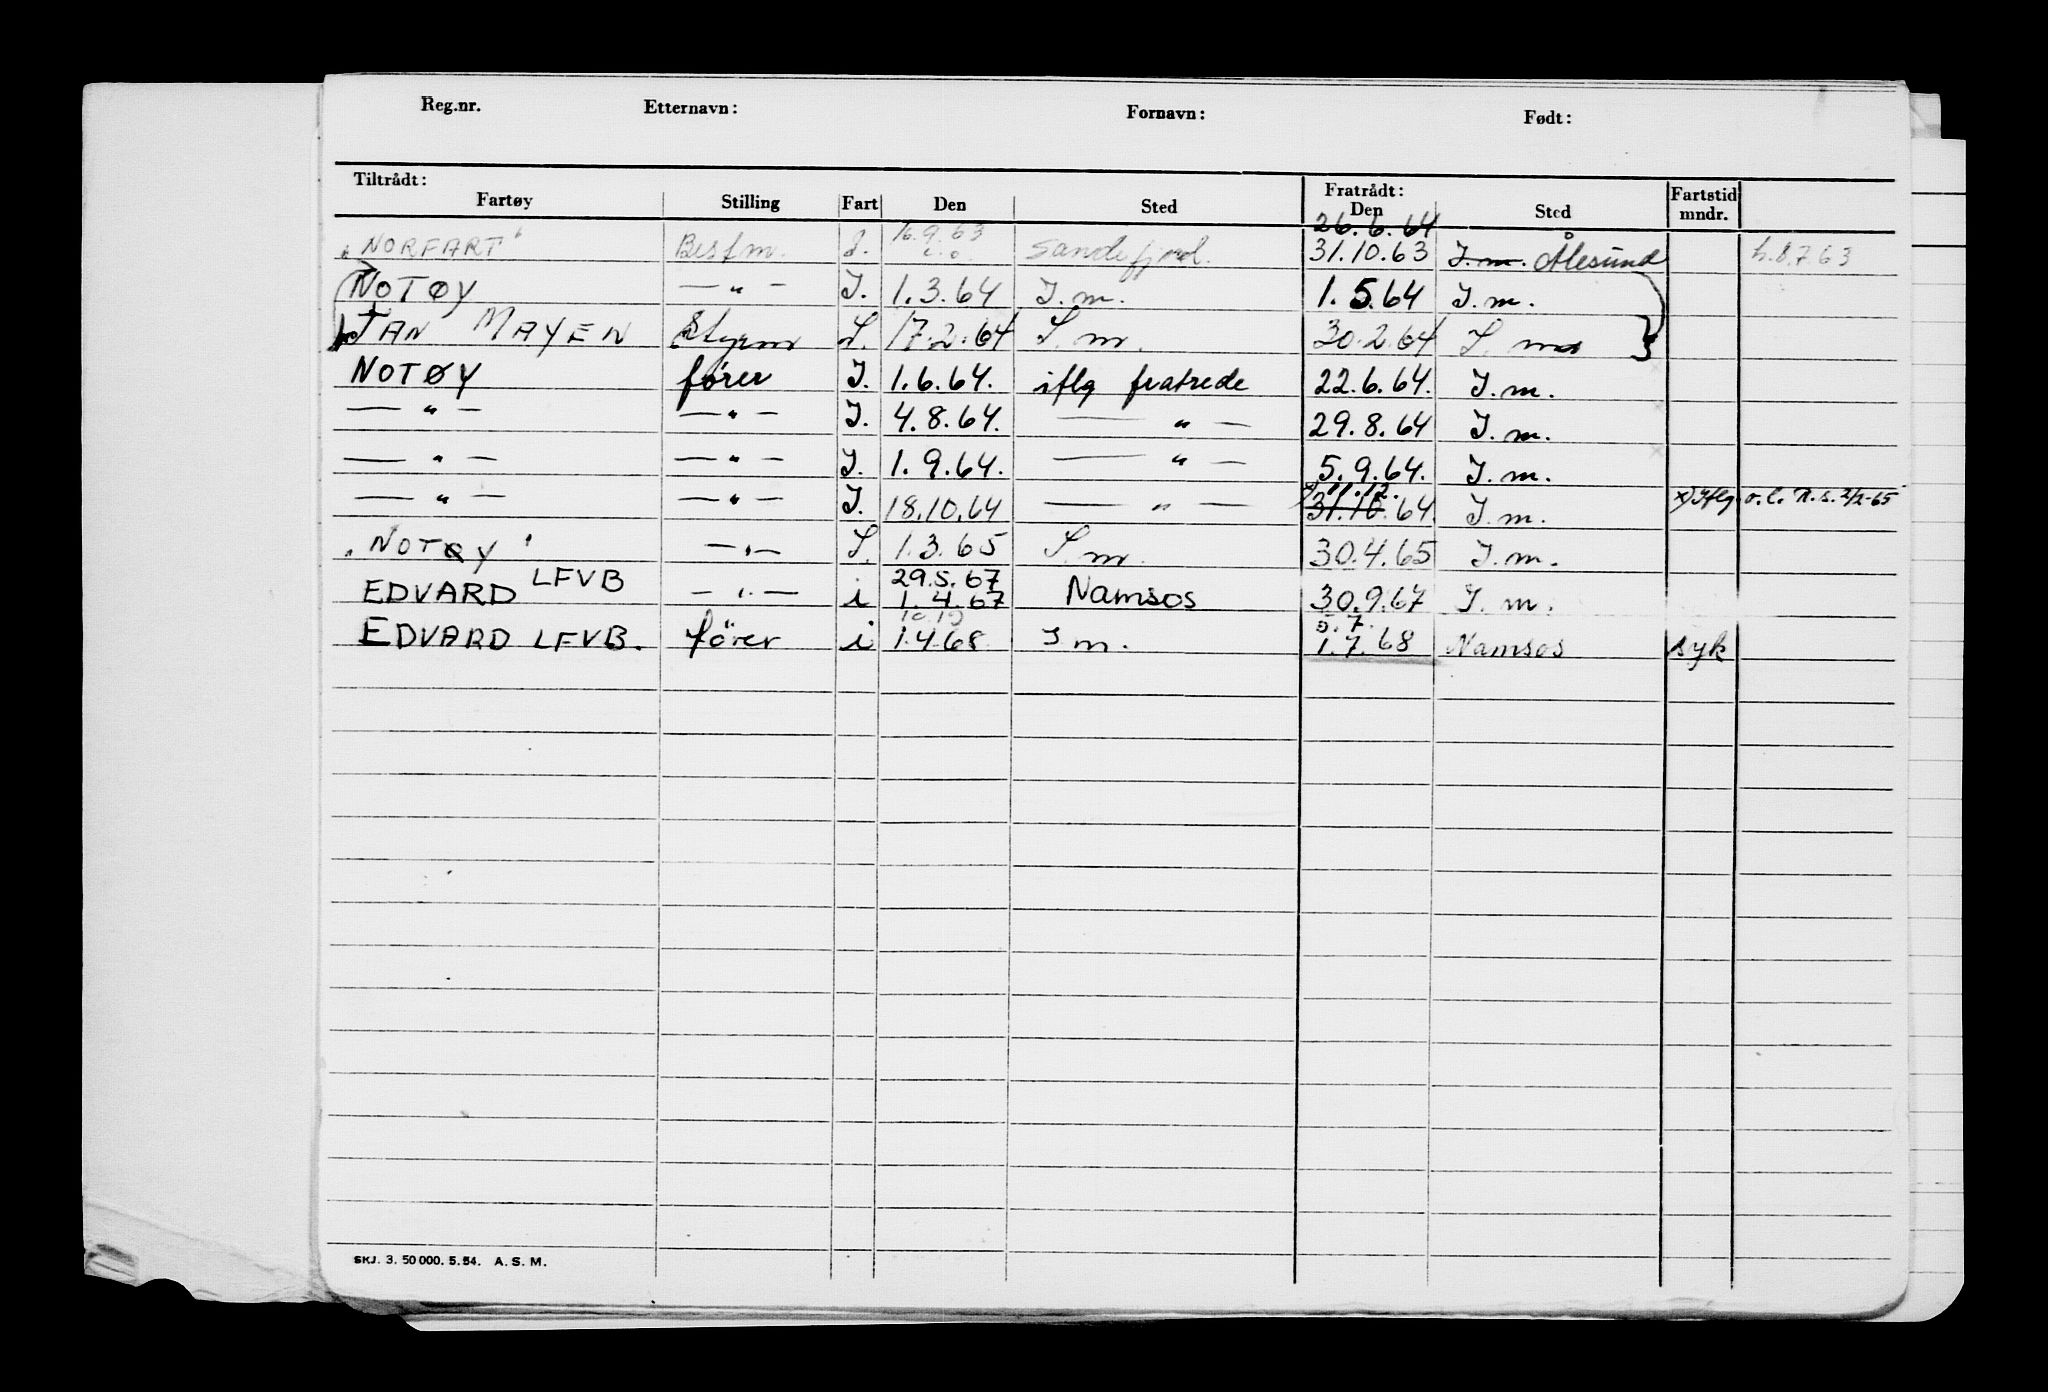 Reg.nr. Etternavn: Fornavn: Født:
Tiltrådt: Fratrådt: Fartstid
Fartøy Stilling Fart Den Sted Den Sted mndr.
16.9.63 26.6.64
"NORFART" Bestm. Sandefjord. 31.10.63 I.m. Ålesund h.8.7.63
NOTØY — " — I. 1.3.64 I.m. 1.5.64 I.m.
JAN MAYEN Styrm 17.2.64 I.m. 30.2.64
NOTØY fører I. 1.6.64. iflg fratrede 22.6.64. I.m.
— " — — " — I. 4.8.64. — " — 29.8.64 I.m.
— " — — " — I. 1.9.64. — " — 5.9.64. I.m.
11.12.
— " — — " — I. 18.10.64 — " — 31.10.64. I.m. x) Iflg. o.l. R.s. 2/2-65
"NOTØY" — " — I. 1.3.65 I.m. 30.4.65 I.m.
29.5.67
EDVARD LFVB — " — i 1.4.67 Namsos 30.9.67 I.m.
5.7.
EDVARD LFVB. förer i 1.4.68 I m. 1.7.68 Namsos syk
SKJ. 3. 50 000. 5. 54. A. S. M.